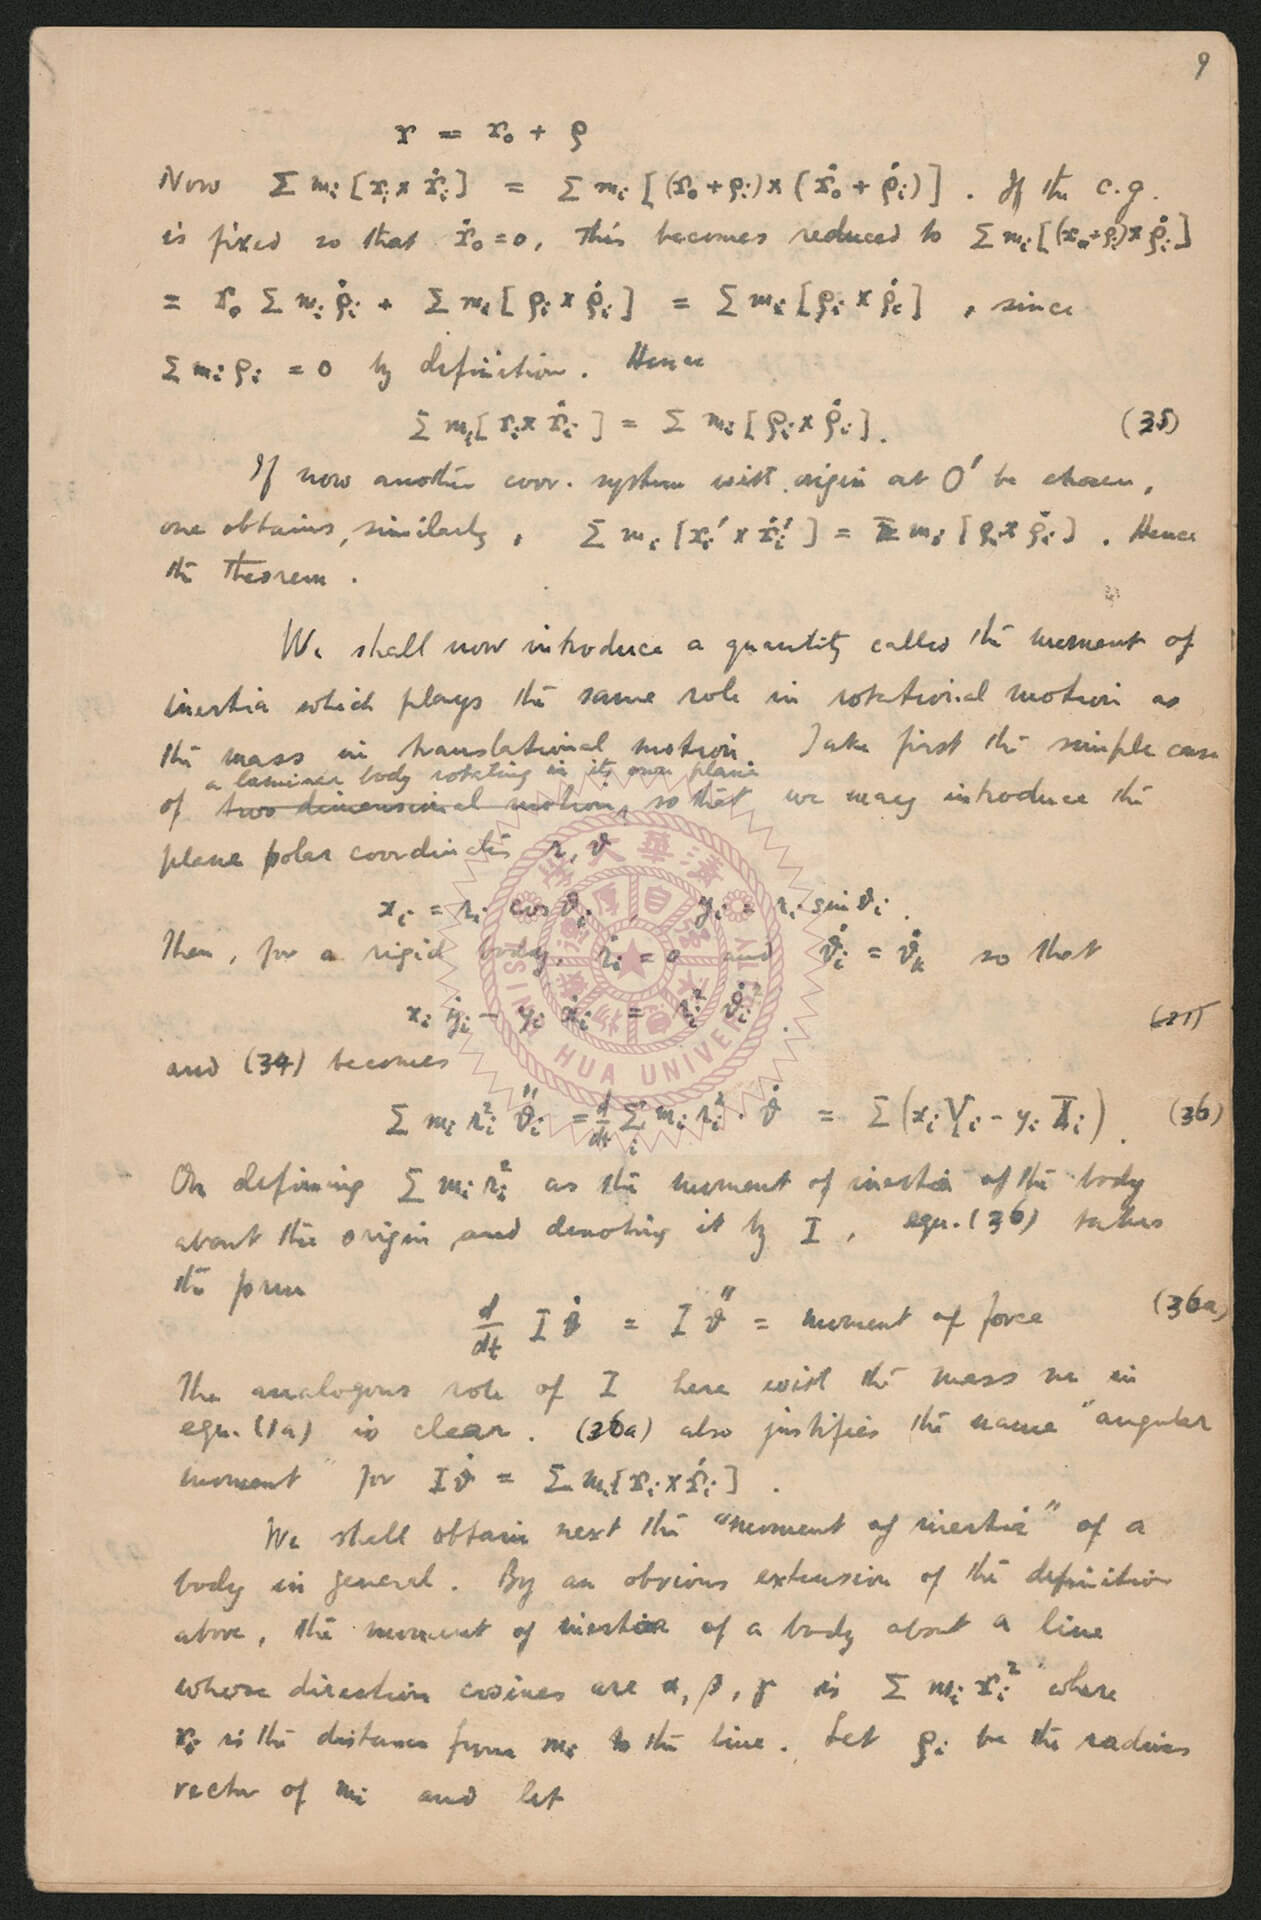 9
r = r₀ + ρ
Now Σ mᵢ [rᵢ × ṙᵢ] = Σ mᵢ [(r₀ + ρᵢ) × (ṙ₀ + ρ̇ᵢ)] . If the c.g.
is fixed so that ṙ₀ = 0, this becomes reduced to Σ mᵢ [(r₀ + ρᵢ) × ρ̇ᵢ]
= r₀ Σ mᵢ ρ̇ᵢ + Σ mᵢ [ρᵢ × ρ̇ᵢ] = Σ mᵢ [ρᵢ × ρ̇ᵢ] , since
Σ mᵢ ρᵢ = 0 by definition. Hence
Σ mᵢ [rᵢ × ṙᵢ] = Σ mᵢ [ρᵢ × ρ̇ᵢ]. (35)
If now another coor. system with origin at O′ be chosen,
one obtains, similarly, Σ mᵢ [rᵢ′ × ṙᵢ′] = Σ mᵢ [ρᵢ × ρ̇ᵢ] . Hence
the theorem.
We shall now introduce a quantity called the moment of
inertia which plays the same role in rotational motion as
the mass in translational motion. Take first the simple case
a laminar body rotating in its own plane
of two dimensional motion, so that we may introduce the
plane polar coordinates r, ϑ
xᵢ = rᵢ cos ϑᵢ , yᵢ = rᵢ sin ϑᵢ .
Then, for a rigid body, ṙᵢ = 0 and ϑ̇ᵢ = ϑ̇ₖ so that
xᵢ ẏᵢ − yᵢ ẋᵢ = rᵢ² ϑ̇ᵢ .
and (34) becomes
Σ mᵢ rᵢ² ϑ̈ᵢ = d/dt Σᵢ mᵢ rᵢ² · ϑ̇ = Σ (xᵢ Yᵢ − yᵢ Xᵢ) . (36)
On defining Σ mᵢ rᵢ² as the moment of inertia of the body
about the origin and denoting it by I , eqn. (36) takes
the form
d/dt I ϑ̇ = I ϑ̈ = moment of force (36a)
The analogous role of I here with the mass m in
eqn. (1a) is clear. (36a) also justifies the name "angular
moment" for I ϑ̇ = Σ mᵢ [rᵢ × ṙᵢ] .
We shall obtain next the "moment of inertia" of a
body in general. By an obvious extension of the definition
above, the moment of inertia of a body about a line
whose direction cosines are α, β, γ is Σ mᵢ rᵢ² where
rᵢ is the distance from mᵢ to the line. Let ρᵢ be the radius
vector of mᵢ and let
HSING HUA UNIVERSITY